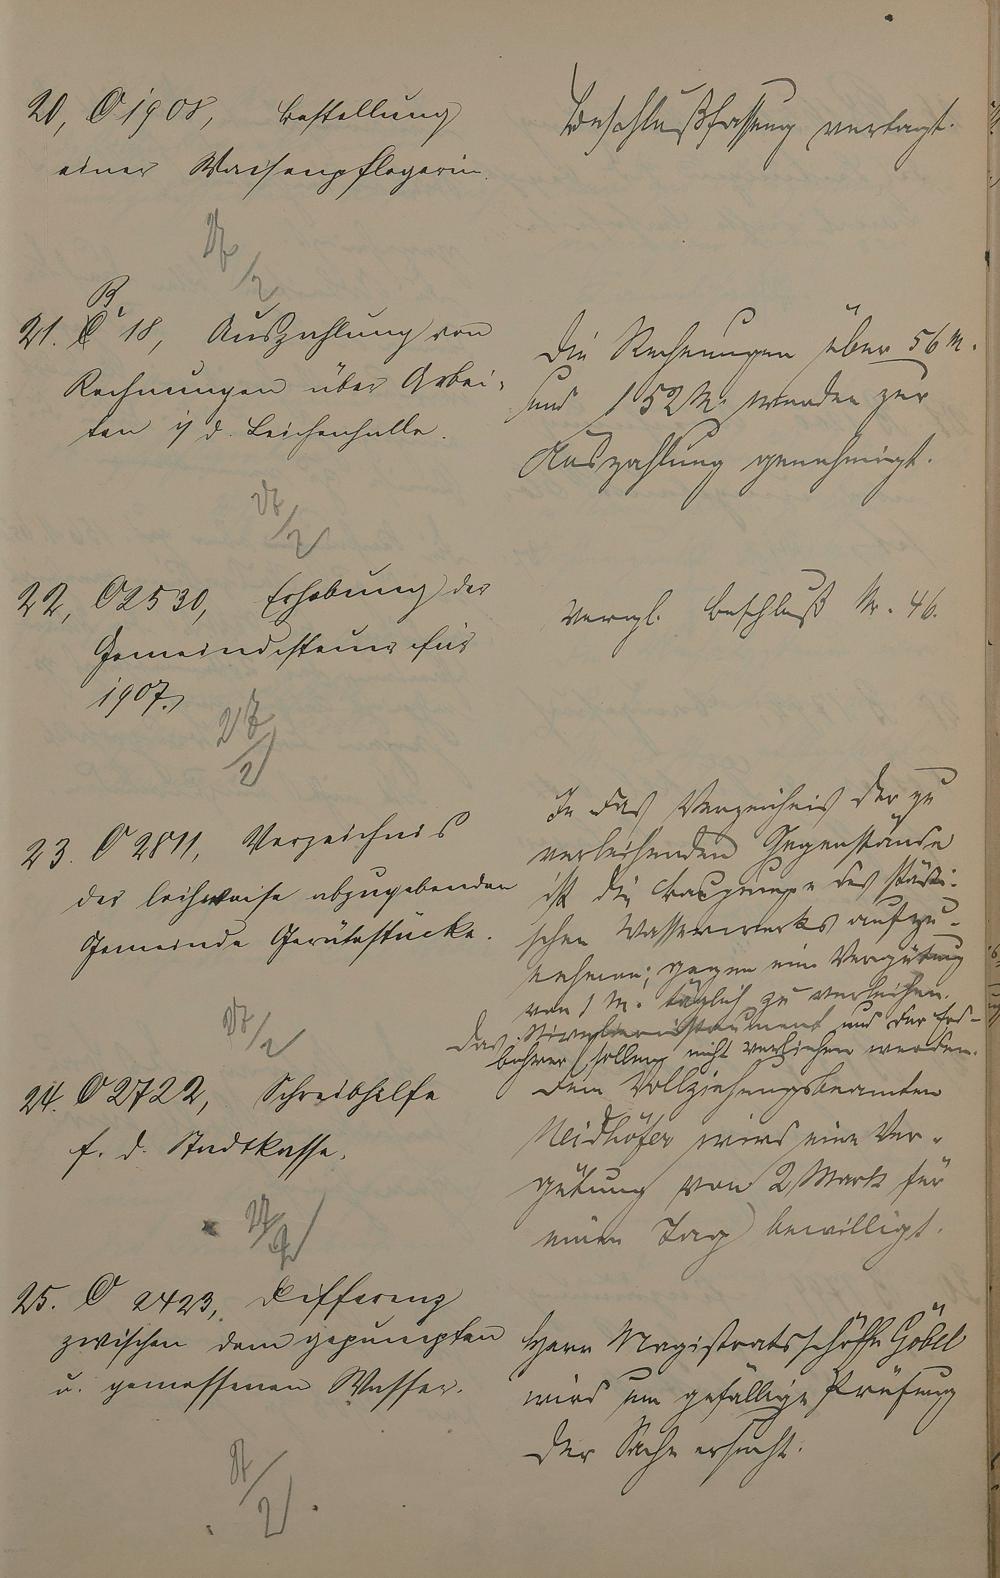 20, O 1908, Bestellung
einer Waisenpflegerin.
Beschlußfassung vertagt.
27/2
B.
21. C 18, Auszahlung von
Rechnungen über Arbei-
ten i/ d. Leichenhalle.
Die Rechnungen über 56 M.
und 152 M. werden zur
Auszahlung genehmigt.
27/2
22, O 2530, Erhebung der
Gemeindesteuer für
1907.
Vergl. Beschluß Nr. 46.
27/2
23. O 2811, Verzeichnis
der leihweise abzugebenden
Gemeinde Gerätestücke.
In das Verzeichnis der zu
verleihenden Gegenstände
ist die Baupumpe des städti-
schen Wasserwerks aufzu-
nehmen; gegen eine Vergütung
von 1 M. täglich zu verleihen.
Das Nivellierinstrument und der Erd-
bohrer sollen nicht verliehen werden.
27/2
24. O 2722, Schreibhilfe
f. d. Stadtkasse.
Dem Vollziehungsbeamten
Neidhöfer wird eine Ver-
gütung von 2 Mark für
einen Tag bewilligt.
27/2
25. O 2423, Differenz
zwischen dem gepumpten
u. gemessenen Wasser.
Herr Magistratsschöffe Göbel
wird um gefällige Prüfung
der Sache ersucht.
27/2